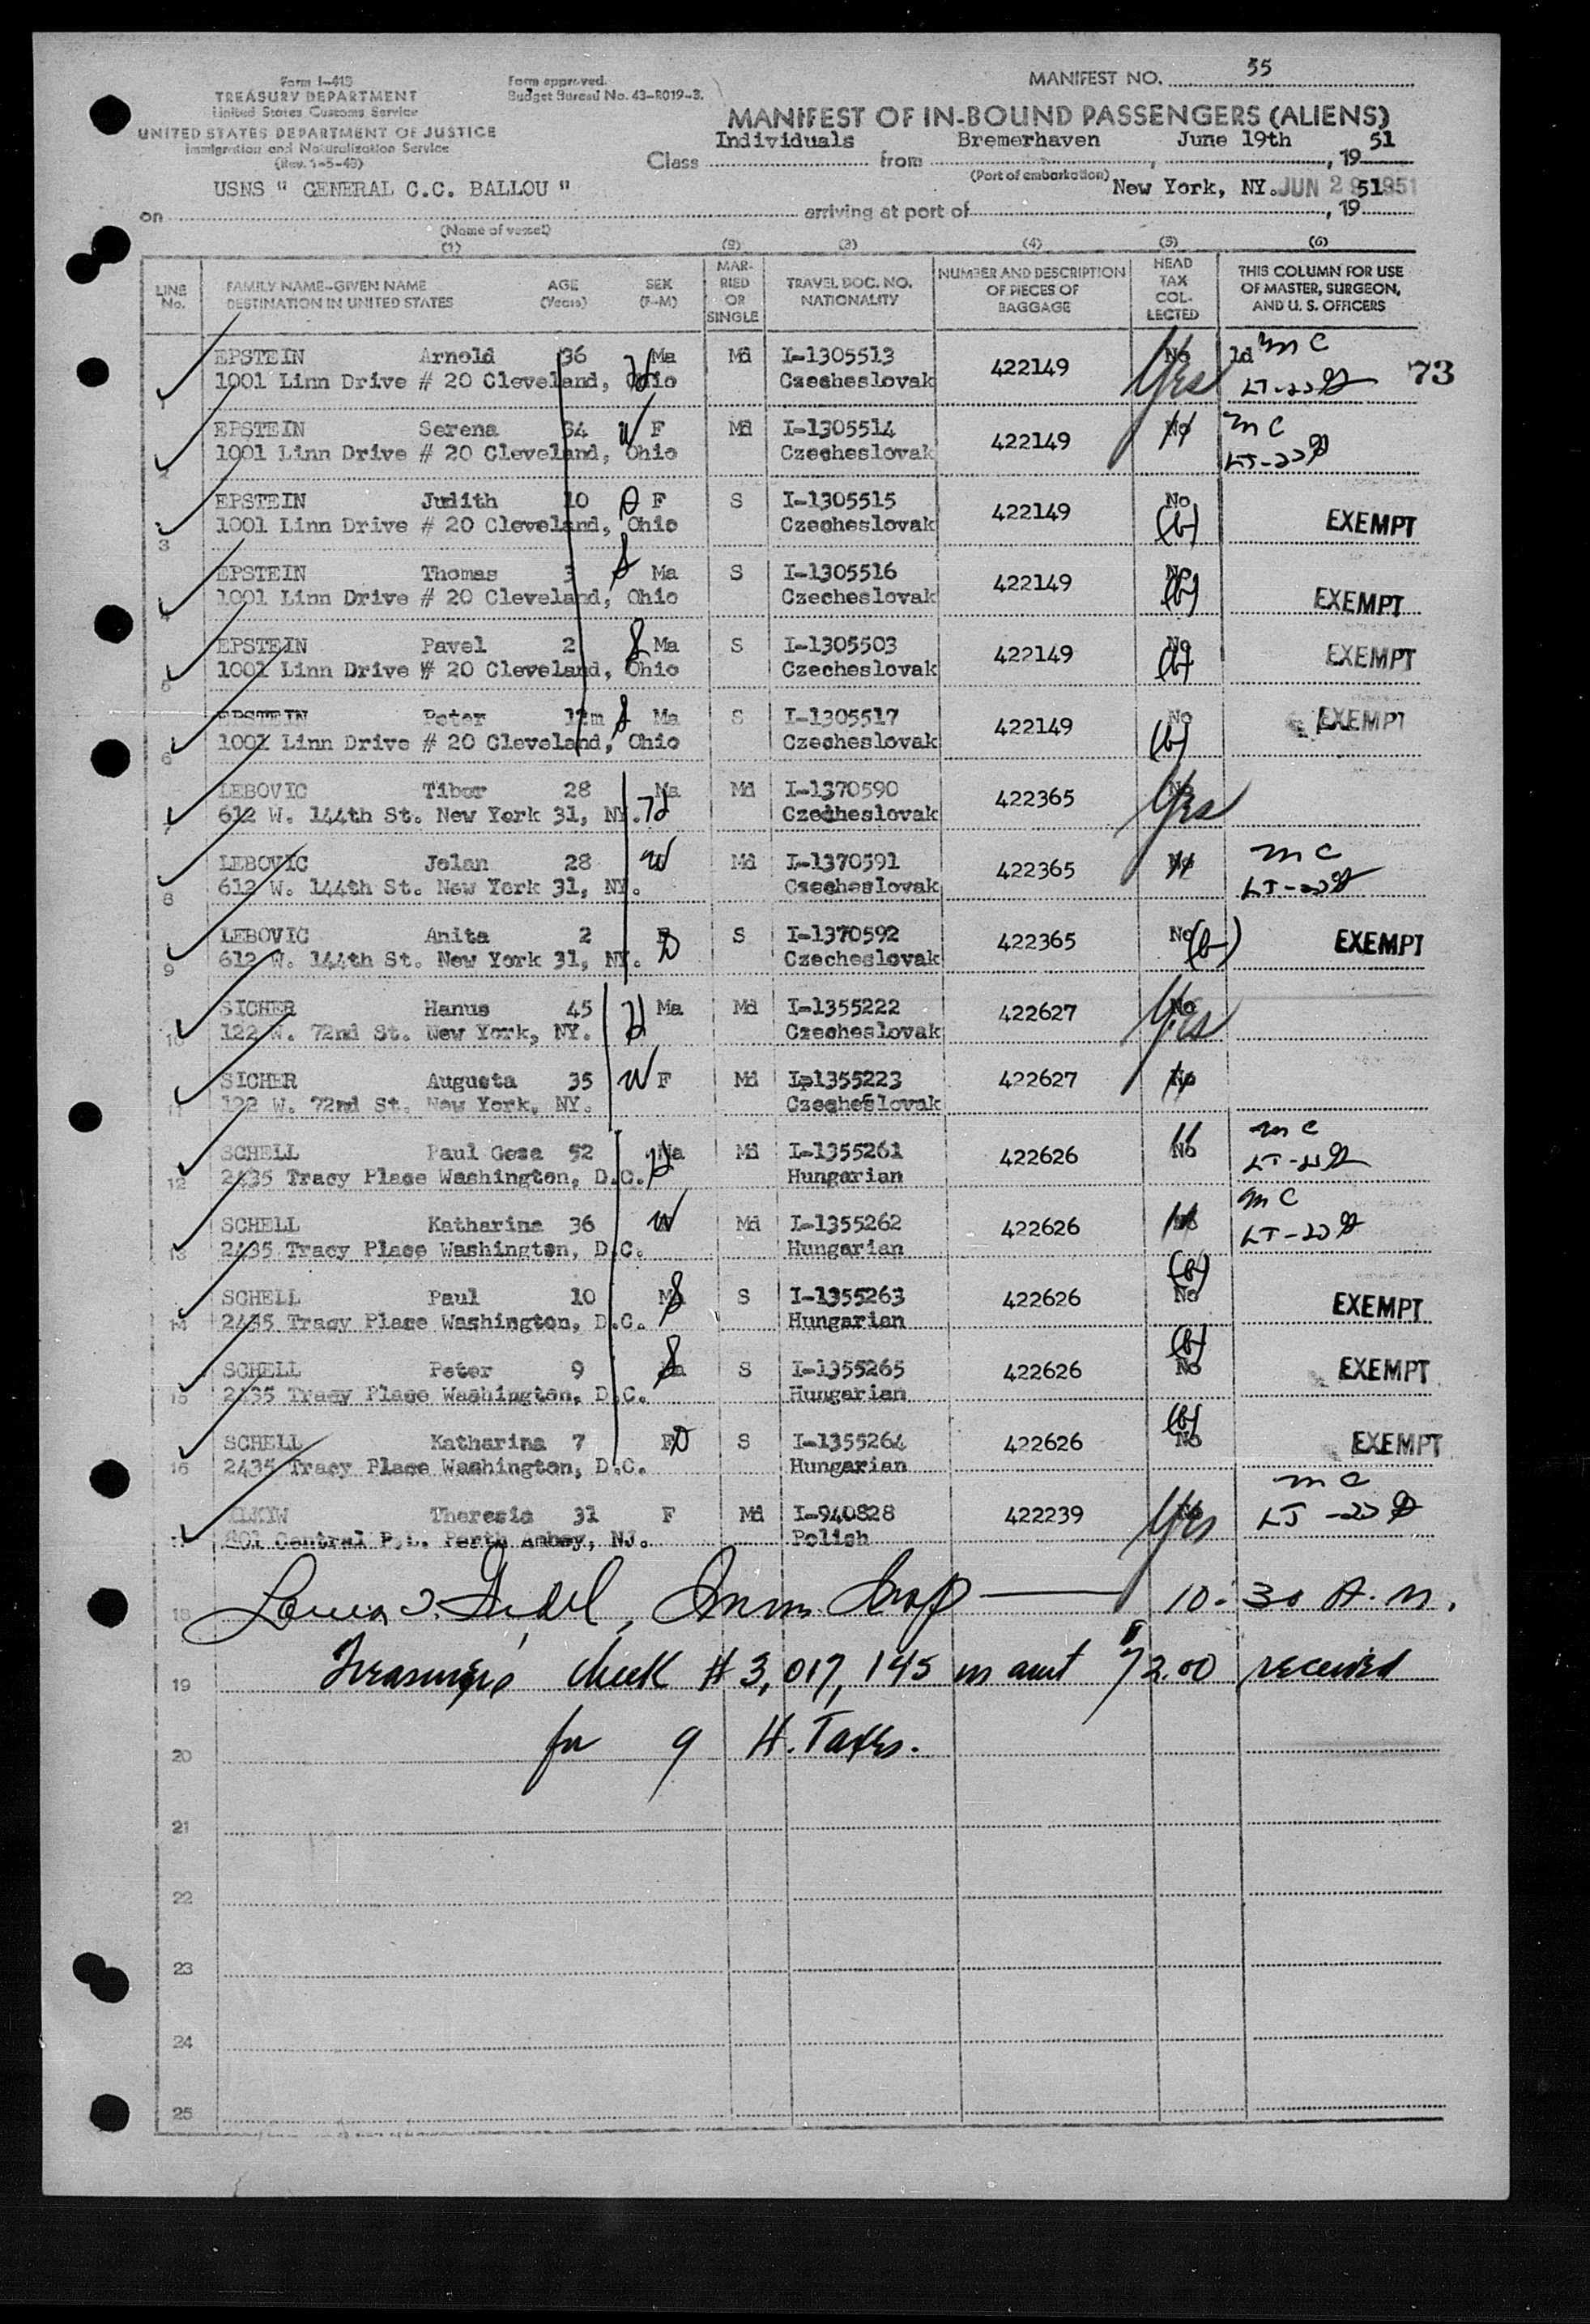 Form I-415
TREASURY DEPARTMENT
United States Customs Service
UNITED STATES DEPARTMENT OF JUSTICE
Immigration and Naturalization Service
Form approved.
Budget Bureau No. 43-R019-3.
MANIFEST NO. 55
MANIFEST OF IN-BOUND PASSENGERS (ALIENS)
Class Individuals from Bremerhaven, June 19th, 1951
(Port of embarkation)
on USNS " GENERAL C.C. BALLOU " arriving at port of New York, NY. JUN 29 1951, 1951
(Name of vessel)
(1) (2) (3) (4) (5) (6)
LINE No. FAMILY NAME-GIVEN NAME DESTINATION IN UNITED STATES AGE (Years) SEX (F-M) MARRIED OR SINGLE TRAVEL DOC. NO. NATIONALITY NUMBER AND DESCRIPTION OF PIECES OF BAGGAGE HEAD TAX COLLECTED THIS COLUMN FOR USE OF MASTER, SURGEON, AND U. S. OFFICERS
EPSTEIN Arnold 36 Ma Md I-1305513 422149 No Yes 1d MC 73
1001 Linn Drive # 20 Cleveland, Ohio Czecheslovak LT-22
EPSTEIN Serena 34 W F Md I-1305514 422149 No " MC
1001 Linn Drive # 20 Cleveland, Ohio Czecheslovak LT-22
EPSTEIN Judith 10 D F S I-1305515 422149 No
3 1001 Linn Drive # 20 Cleveland, Ohio Czecheslovak (b) EXEMPT
EPSTEIN Thomas 3 S Ma S I-1305516 422149 No
4 1001 Linn Drive # 20 Cleveland, Ohio Czecheslovak (b) EXEMPT
EPSTEIN Pavel 2 S Ma S I-1305503 422149 No
5 1001 Linn Drive # 20 Cleveland, Ohio Czecheslovak (b) EXEMPT
EPSTEIN Peter 11m S Ma S I-1305517 422149 No EXEMPT
6 1001 Linn Drive # 20 Cleveland, Ohio Czecheslovak (b)
LEBOVIC Tibor 28 Ma Md I-1370590 422365 No Yes
7 612 W. 144th St. New York 31, NY. H Czecheslovak
LEBOVIC Jolan 28 W Md I-1370591 422365 No " MC
8 612 W. 144th St. New York 31, NY. Czecheslovak LT-22
LEBOVIC Anita 2 F D S I-1370592 422365 No (b) EXEMPT
9 612 W. 144th St. New York 31, NY. Czecheslovak
SICHER Hanus 45 H Ma Md I-1355222 422627 No Yes
10 122 W. 72nd St. New York, NY. Czecheslovak
SICHER Augusta 35 W F Md I-1355223 422627 No "
11 122 W. 72nd St. New York, NY. Czecheslovak
SCHELL Paul Geza 52 Ma Md I-1355261 422626 No " MC
12 2435 Tracy Place Washington, D.C. H Hungarian LT-22
SCHELL Katharina 36 W Md I-1355262 422626 No " MC
13 2435 Tracy Place Washington, D.C. Hungarian LT-22
SCHELL Paul 10 Ma S S I-1355263 422626 (b) No EXEMPT
14 2435 Tracy Place Washington, D.C. Hungarian
SCHELL Peter 9 Ma S S I-1355265 422626 (b) No EXEMPT
15 2435 Tracy Place Washington, D.C. Hungarian
SCHELL Katharina 7 F D S I-1355264 422626 (b) No EXEMPT
16 2435 Tracy Place Washington, D.C. Hungarian
ILKIW Theresia 31 F Md I-940828 422239 No Yes MC
17 801 Central P.L. Perth Amboy, NJ. Polish LT-22
18 Imm. Insp 10-30 A.M.
19 Treasurer's check # 3,017,145 in amt $72.00 received
20 for 9 H. Taxes.
21
22
23
24
25